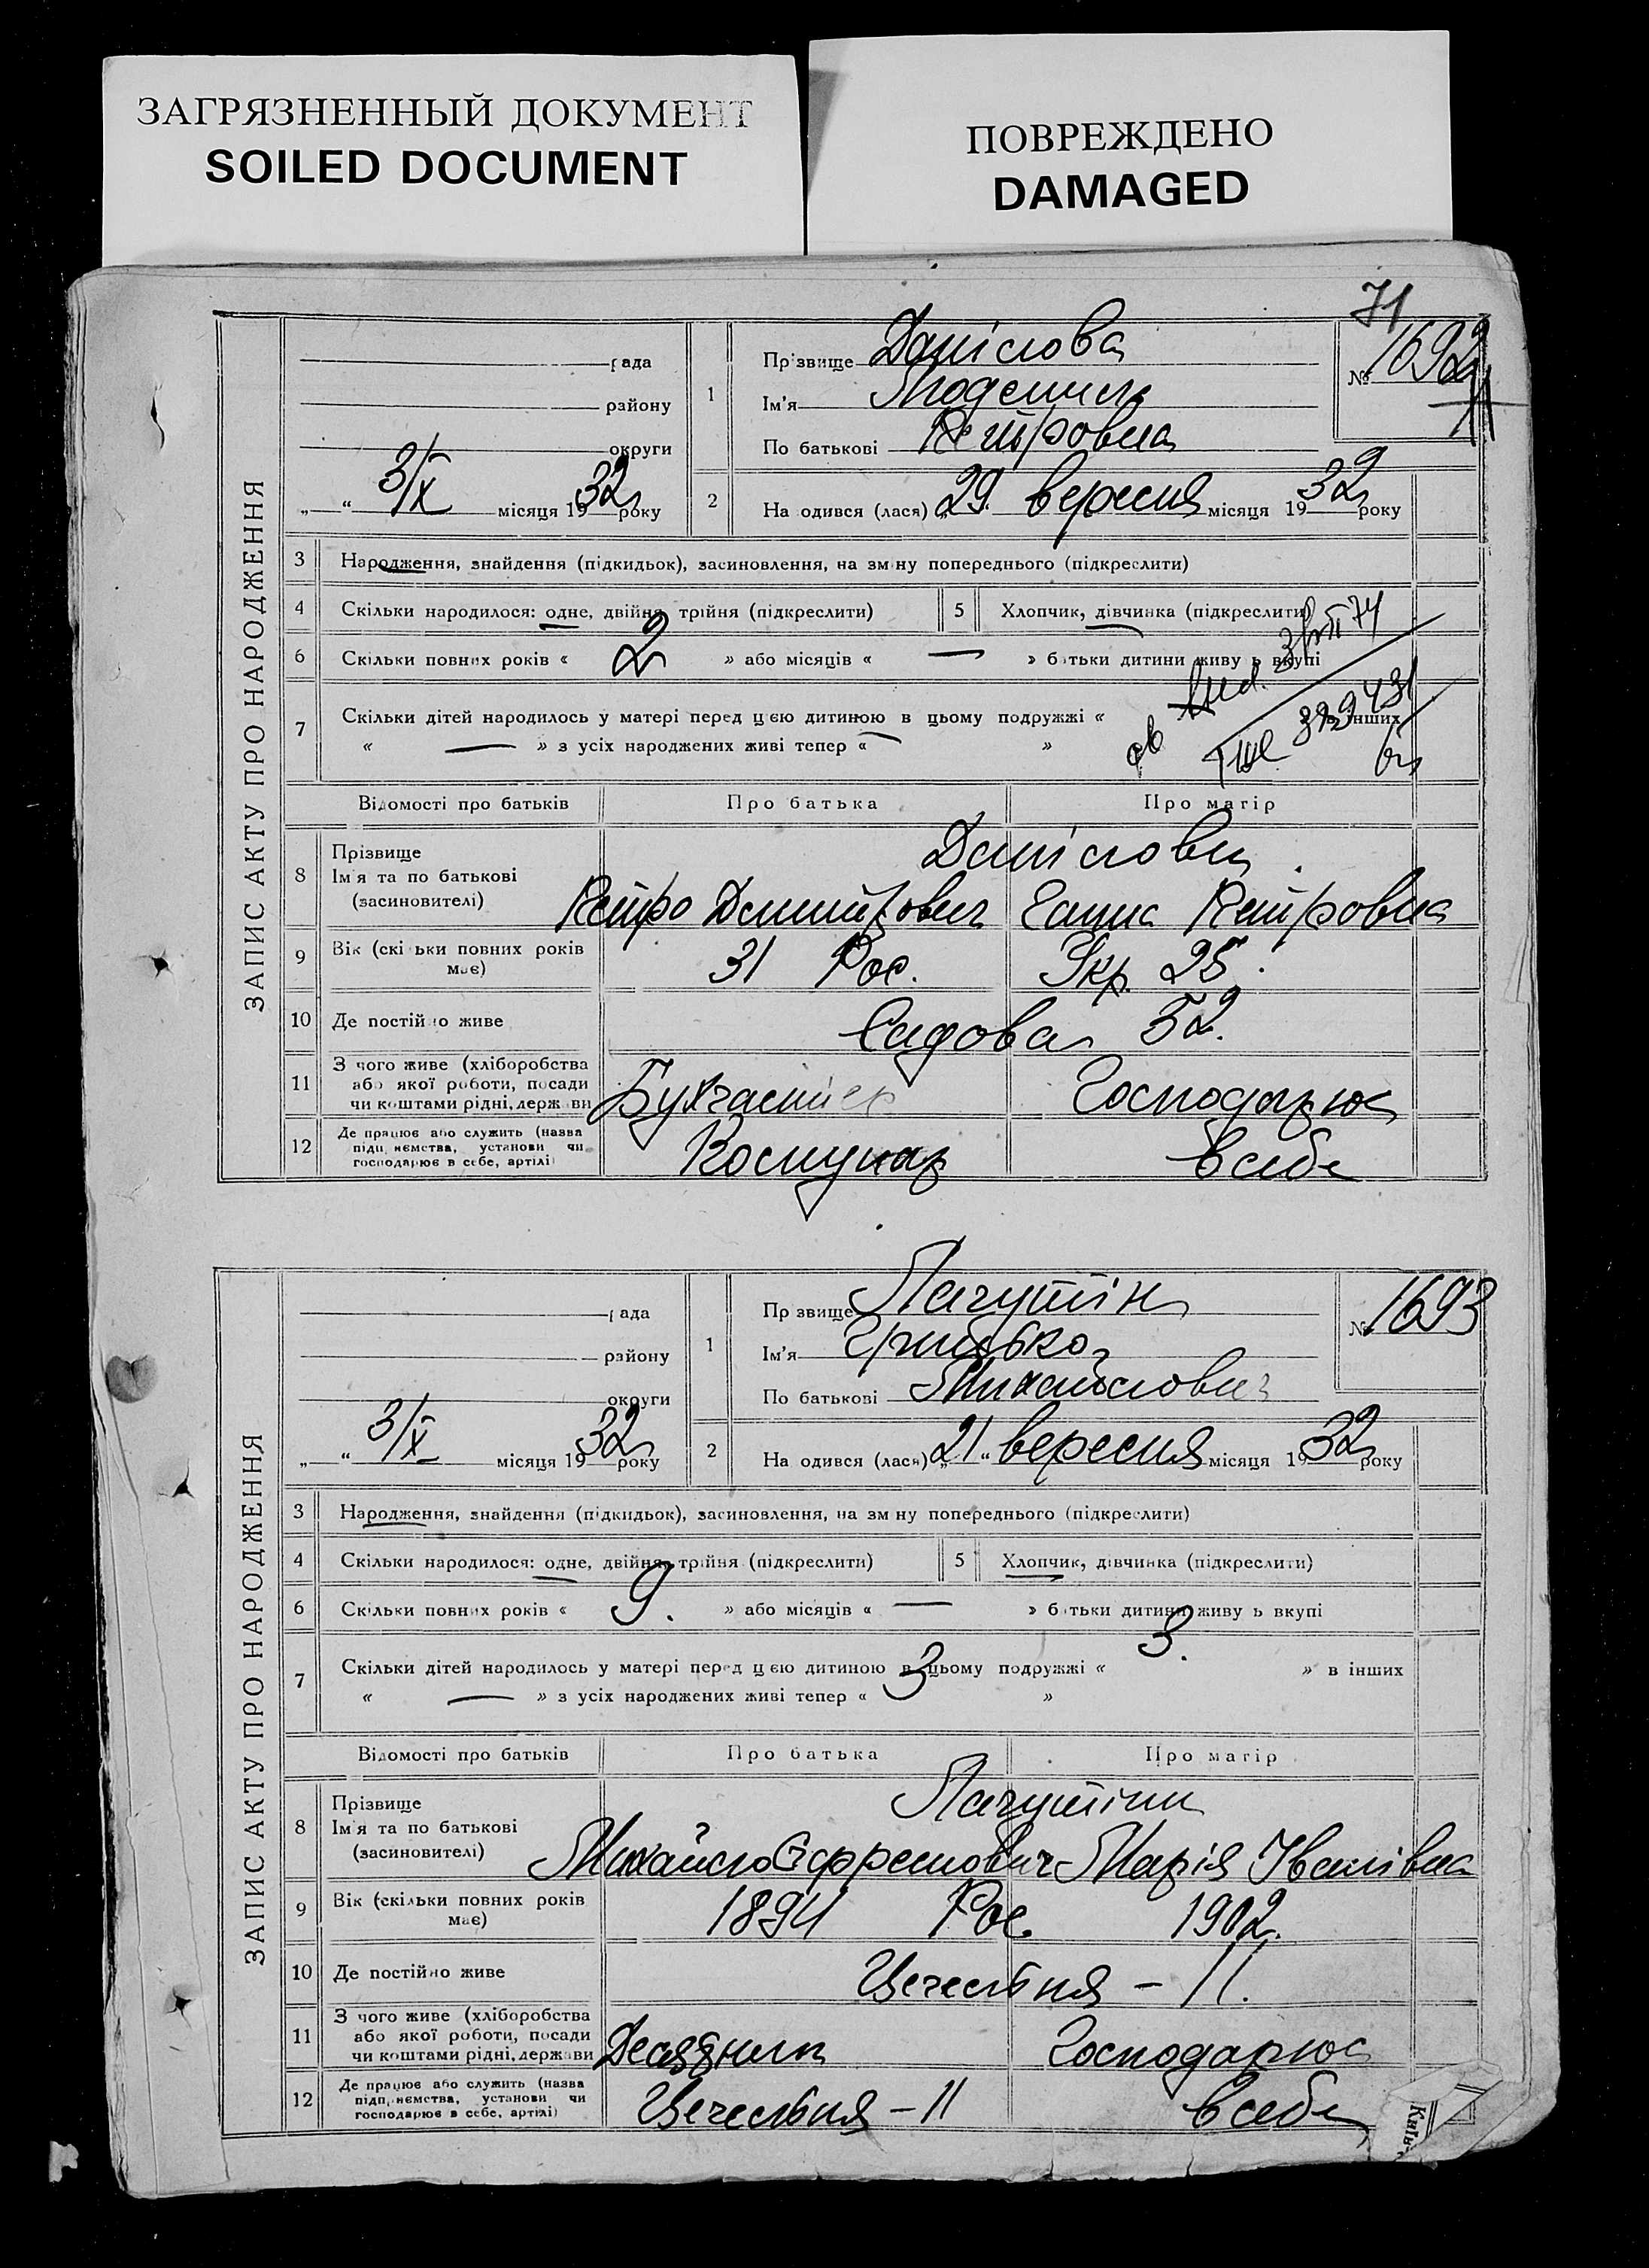 ЗАГРЯЗНЕННЫЙ ДОКУМЕНТ
SOILED DOCUMENT
ПОВРЕЖДЕНО
DAMAGED
71
ЗАПИС АКТУ ПРО НАРОДЖЕННЯ
рада
району
округи
„ “ 3/X місяця 1932 року
1
Прізвище Данілова
Ім'я Людмила
По батькові Петровна
№ 1692
2 На одився (лася) „29 вересня місяця 1932 року
3 Народження, знайдення (підкидьок), засиновлення, на зм ну попереднього (підкреслити)
4 Скільки народилося: одне, двійня, трійня (підкреслити) 5 Хлопчик, дівчинка (підкреслити)
6 Скільки повних років « 2 » або місяців « — » батьки дитини живу ь вкупі
7 Скільки дітей народилось у матері перед цією дитиною в цьому подружжі « в інших
« — » з усіх народжених живі тепер « — »
Відомості про батьків Про батька Про матір
8 Прізвище
Ім'я та по батькові
(засиновителі)
Данілови
Петро Дмитрович Ганна Петровна
9 Вік (скі ьки повних років має) 31 Рос. Укр. 25.
10 Де постійно живе Садова 52.
11 З чого живе (хліборобства
або якої роботи, посади
чи коштами рідні, держ ви
Бухгалтер Господарює
12 Де працює або служить (назва
підп ємства, установи чи
господарює в себе, артілі)
Комунар в себе
ЗАПИС АКТУ ПРО НАРОДЖЕННЯ
рада
району
округи
„ “ 3/X місяця 1932 року
1
Пр звище Лагутін
Ім'я Грицько
По батькові Михайлович
№ 1693
2 На одився (лася) „21“ вересня місяця 1932 року
3 Народження, знайдення (підкидьок), засиновлення, на зм ну попереднього (підкреслити)
4 Скільки народилося: одне, двійня, трійня (підкреслити) 5 Хлопчик, дівчинка (підкреслити)
6 Скільки повних років « 9. » або місяців « — » батьки дитини живу ь вкупі
7 Скільки дітей народилось у матері перед цією дитиною в цьому подружжі « 3. » в інших
« — » з усіх народжених живі тепер « 3 »
Відомості про батьків Про батька Про матір
8 Прізвище
Ім'я та по батькові
(засиновителі)
Лагутіни
Михайло Єфремович Марія Іванівна
9 Вік (скільки повних років має) 1894 Рос. 1902.
10 Де постійно живе – 11.
11 З чого живе (хліборобства
або якої роботи, посади
чи коштами рідні, держави
Господарює
12 Де працює або служить (назва
підп ємства, установи чи
господарює в себе, артілі)
– 11 в себе
Київ